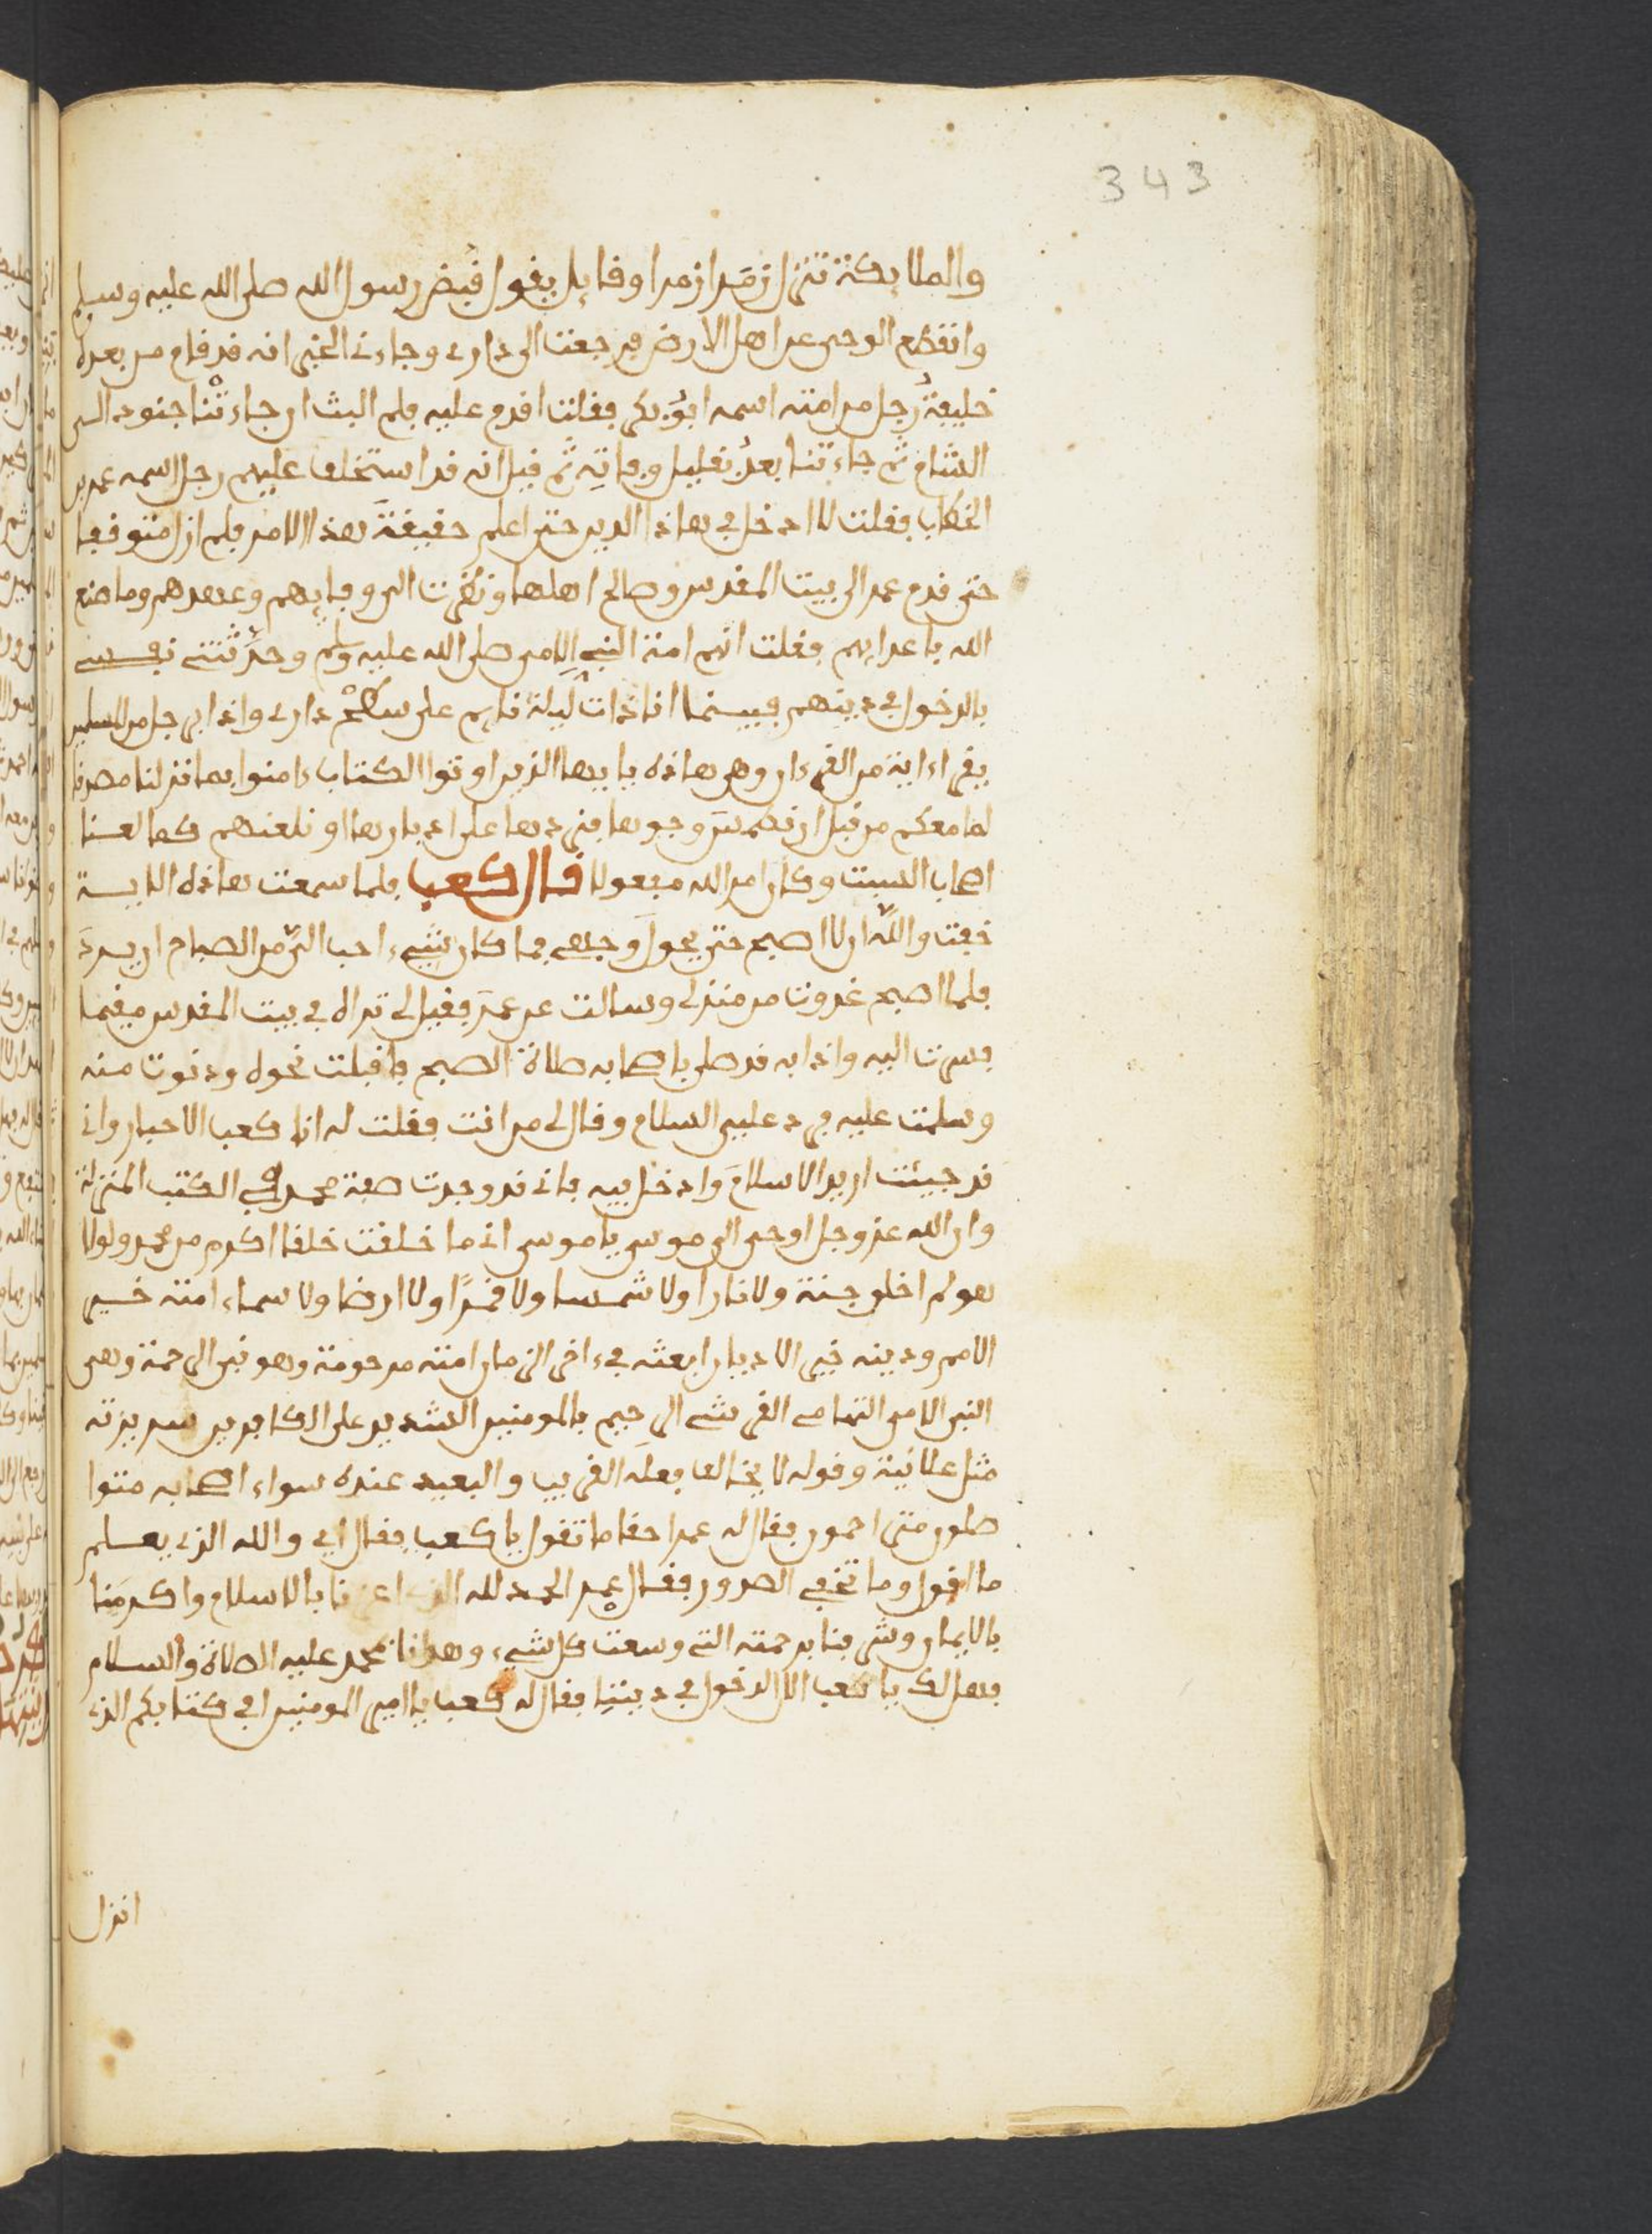 343
والملايكة تنزل زمرا زمرا وقايل يقول قبض رسول الله صلى الله عليه وسلم
وانقطع الوحي عن اهل الارض فرجعت الى داري وجاءني الخبر انه قد قام من بعده
خليفة رجل من امته اسمه ابو بكر فقلت اقدم عليه فلم البث ان جاءتنا جنوده الى
الشام ثم جاءتنا بعد بقليل وفاته ثم قيل انه قد استخلف عليهم رجل اسمه عمر بن
الخطاب فقلت لا ادخل في هاذا الدين حتى اعلم حقيقة هذا الامر فلم ازل متوقفا
حتى قدم عمر الى بيت المقدس وصالح اهلها ونظرت الى وفايهم وعهدهم وما صنع
الله باعدايهم فقلت انهم امة النبي الامي صلى الله عليه وسلم وحدثتني نفسي
بالدخول في دينهم فبينما انا ذات ليلة نايم على سطح داري واذا برجل من المسلمين
يقرا ءاية من القرءان وهي هاذه يا ايها الذين اوتوا الكتاب ءامنوا بما نزلنا مصدقا
لما معكم من قبل ان نطمس وجوها فنردها على ادبارها او نلعنهم كما لعنا
اصحاب السبت وكان امر الله مفعولا قال كعب فلما سمعت هاذه الاية
خفت والله ان لا اصبح حتى يحول وجهي فما كان شيء احب الي من الصباح ان يرد
فلما اصبح غدوت من منزلي وسالت عن عمر فقيل لي تراه في بيت المقدس مقيما
فسرت اليه واذا به قد صلى باصحابه صلاة الصبح فاقبلت نحوه ودنوت منه
وسلمت عليه فرد علي السلام وقال لي من انت فقلت له انا كعب الاحبار واني
قد جيئت اريد الاسلام وادخل فيه فاني قد وجدت صفة محمد في الكتب المنزلة
وان الله عز وجل اوحى الى موسى يا موسى اني ما خلقت خلقا اكرم من محمد ولولا
هو لم اخلق جنة ولا نارا ولا شمسا ولا قمرا ولا ارضا ولا سماء امته خير
الامم ودينه خير الاديان ابعثه في ءاخر الزمان امته مرحومة وهو نبي الرحمة وهو
النبي الامي التهامي القرشي الرحيم بالمومنين الشديد على الكافرين سريرته
مثل علانية وقوله لا يخالف فعله القريب والبعيد عنده سواء اصحابه متوا
صلون متراحمون فقال له عمر احقا ما تقول يا كعب فقال اي والله الذي يعلم
ما اقول وما تخفي الصدور فقال عمر الحمد لله الذي اعزنا بالاسلام واكرمنا
بالايمان وشرفنا برحمته التي وسعت كل شيء وهدانا بمحمد عليه الصلاة والسلام
فهل لك يا كعب الا الدخول في ديننا فقال له كعب يا امير المومنين افي كتابكم الذي
انزل